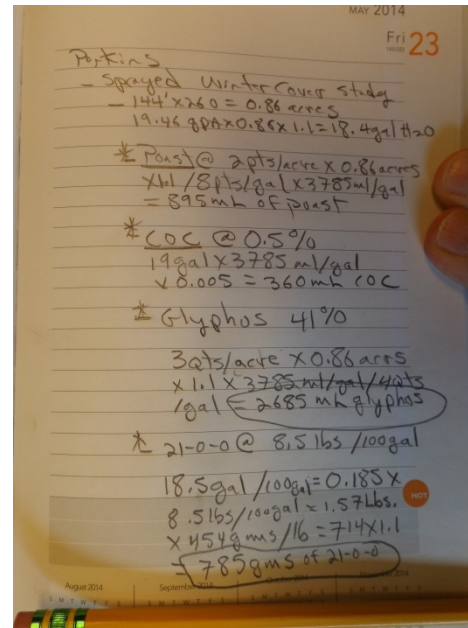 MAY 2014
Fri 23
Perkins
- Sprayed Winter Cover study
- 144' x 260 = 0.86 acres
19.46 gpA x 0.86 x 1.1 = 18.4 gal H2O
* Poast @ 2pts/acre x 0.86 acres
x 1.1 / 8pts/gal x 3785 ml/gal
= 895 mL of poast
* COC @ 0.5%
19 gal x 3785 ml/gal
x 0.005 = 360 mL COC
* Glyphos 41%
3 Qts/acre x 0.86 acrs
x 1.1 x 3785 ml/gal/4Qts
/gal = 2685 mL glyphos
* 21-0-0 @ 8.5 lbs /100gal
18.5gal /100gal = 0.185 x
8.5 lbs/100gal = 1.57 Lbs.
x 454 gms/lb = 714 x 1.1
= 785 gms of 21-0-0
HOT
August 2014 September 2014 2014
S M T W T F S S M T W T F